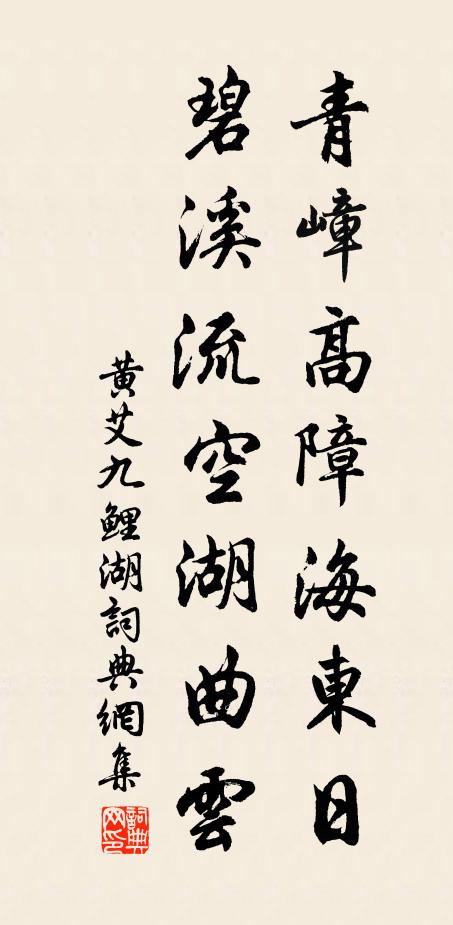 青嶂高障海東日
碧溪流空湖曲雲
黄艾九鯉湖詞典網集
詞典網印